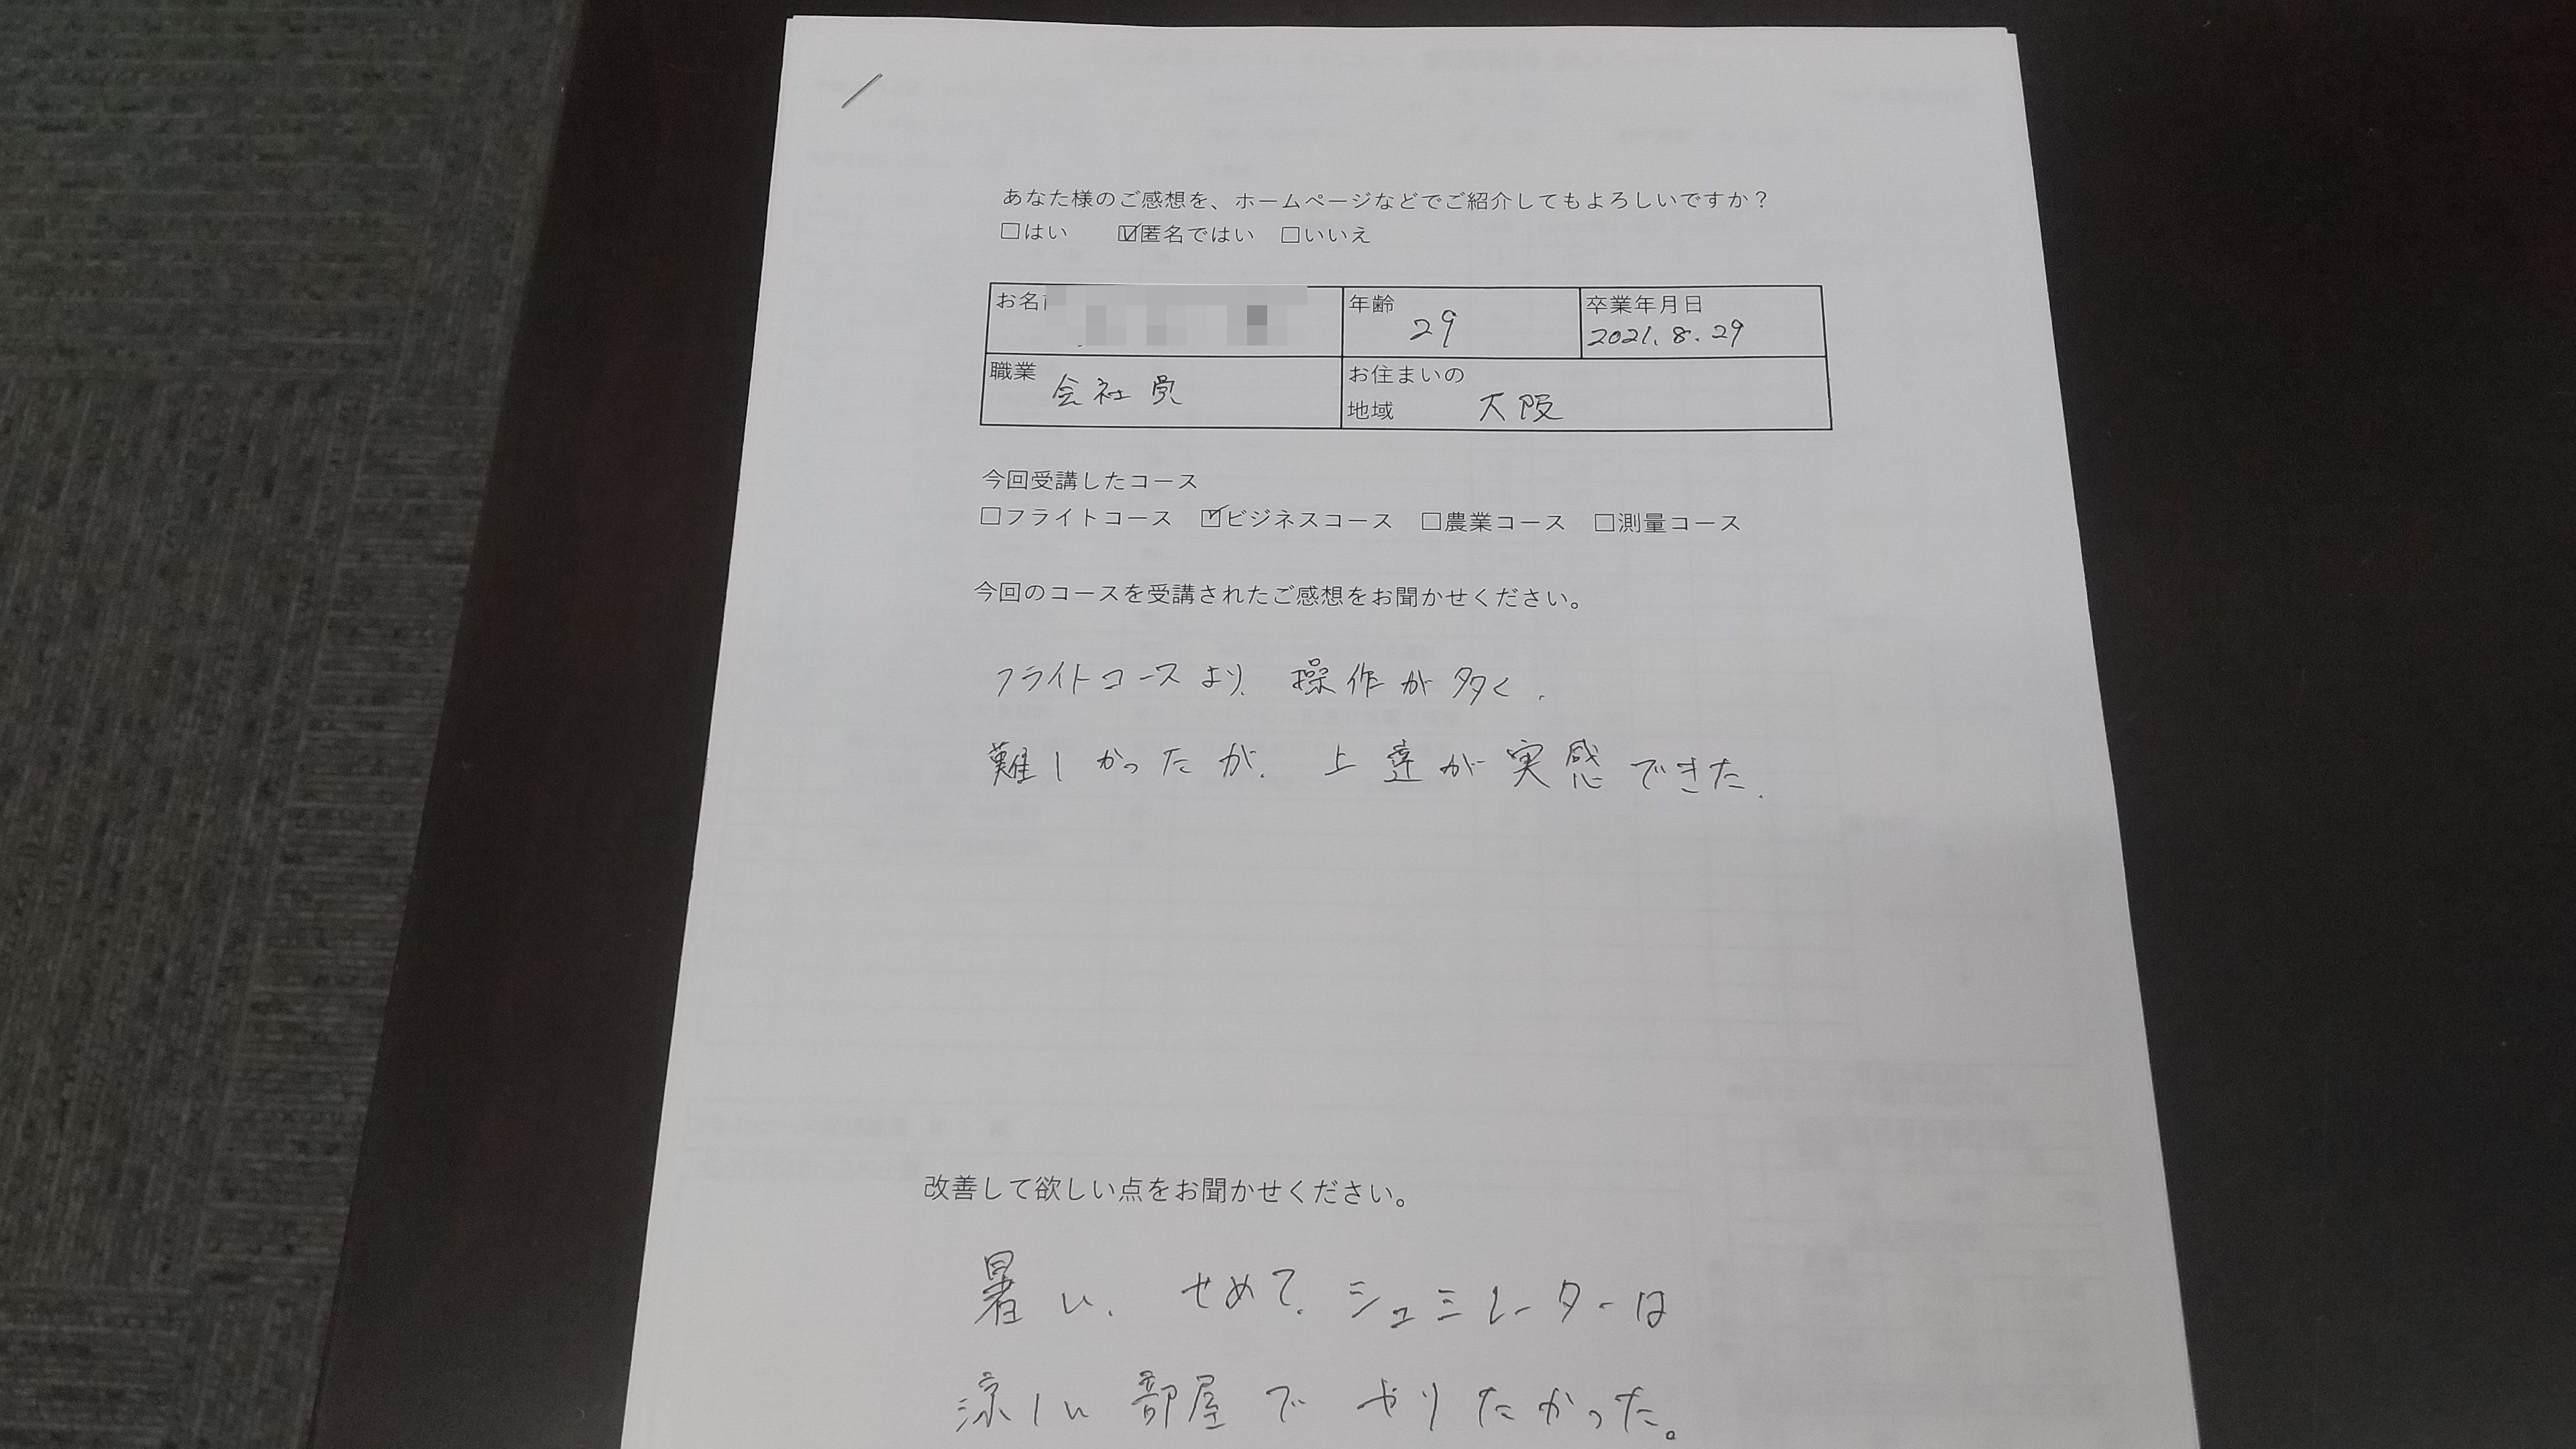 あなた様のご感想を、ホームページなどでご紹介してもよろしいですか？
□はい ☑匿名ではい □いいえ
お名
年齢 29
卒業年月日 2021.8.29
職業 会社員
お住まいの
地域 大阪
今回受講したコース
□フライトコース ☑ビジネスコース □農業コース □測量コース
今回のコースを受講されたご感想をお聞かせください。
フライトコースより、操作が多く、
難しかったが、上達が実感できた。
改善して欲しい点をお聞かせください。
暑い、せめて、シュミレーターは
涼しい部屋でやりたかった。